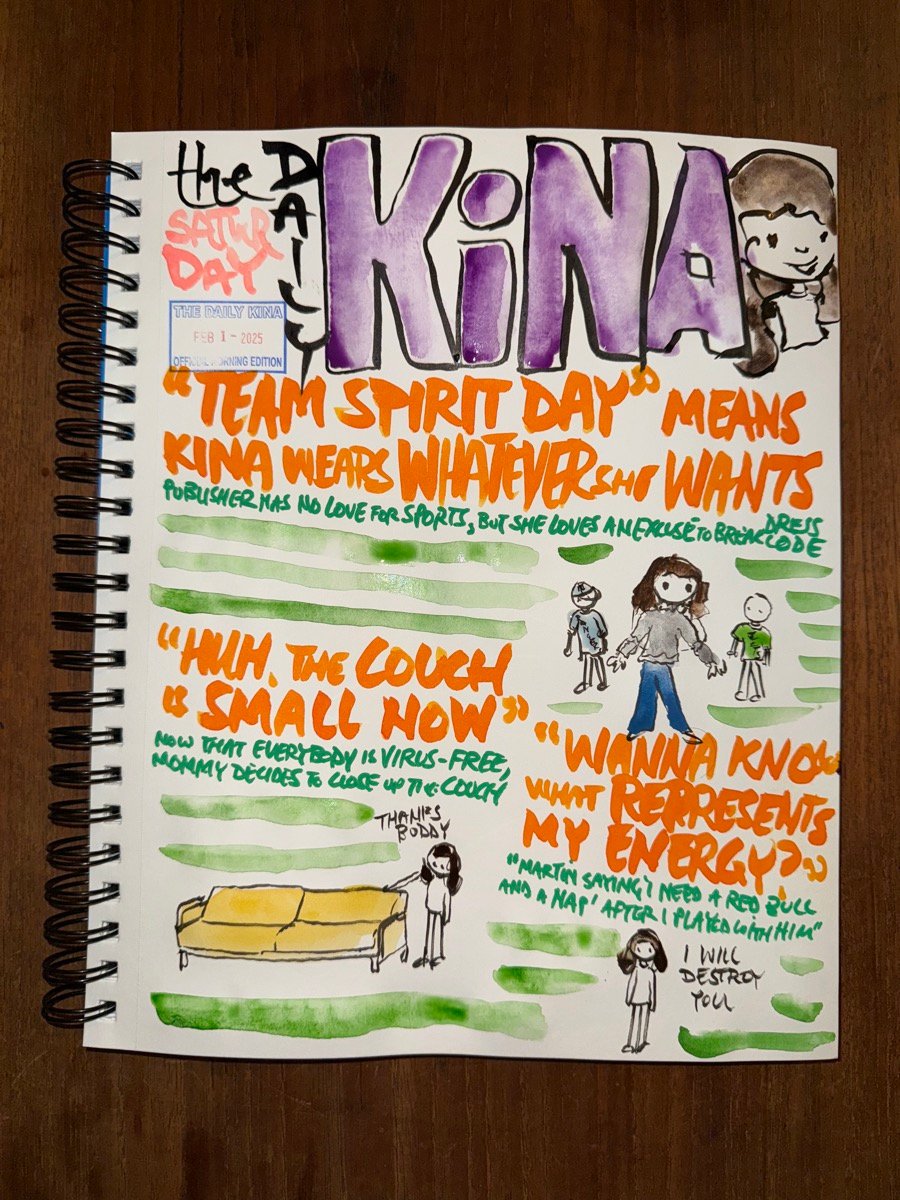 the DAILY KiNA
SATUR
DAY
THE DAILY KINA
FEB 1 - 2025
OFFICIAL MORNING EDITION
"TEAM SPIRIT DAY" MEANS
KINA WEARS WHATEVER SHE WANTS
PUBLISHER HAS NO LOVE FOR SPORTS, BUT SHE LOVES AN EXCUSE TO BREAK DRESS
CODE
"HUH. THE COUCH
IS SMALL NOW"
NOW THAT EVERYBODY IS VIRUS-FREE,
MOMMY DECIDES TO CLOSE UP THE COUCH
THANKS
BUDDY
"WANNA KNOW
WHAT REPRESENTS
MY ENERGY?"
"MARTIN SAYING 'I NEED A RED BULL
AND A NAP' AFTER I PLAYED WITH HIM"
I WILL
DESTROY
YOU